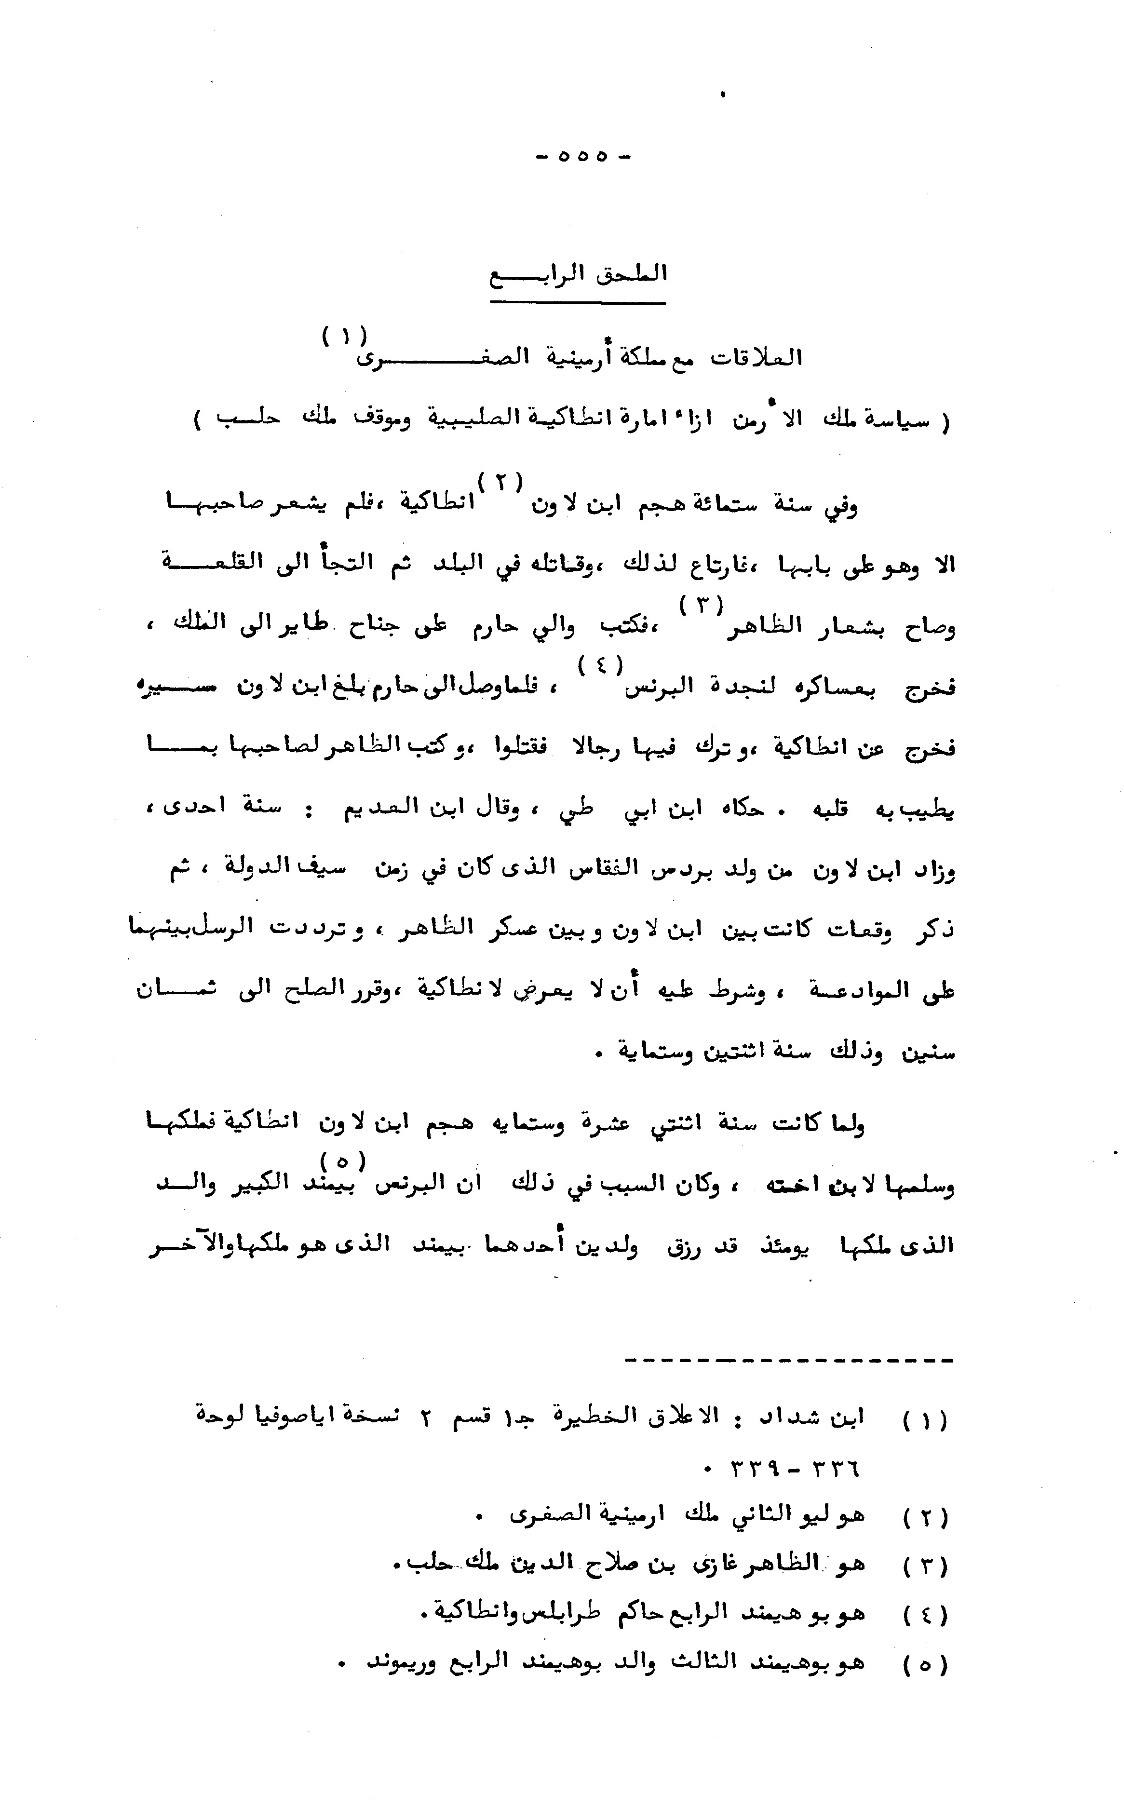 - ٥٥٥ -
الملحق الرابــــع
العلاقات مع مملكة أرمينية الصغــــــــرى (١)
( سياسة ملك الأرمن ازاء امارة انطاكية الصليبية وموقف ملك حلـب )
وفي سنة ستمائة هجم ابن لاون (٢) انطاكية ،فلم يشعر صاحبهـا
الا وهو على بابها ،فارتاع لذلك ،وقاتله في البلد ثم التجأ الى القلعـــة
وصاح بشعار الظاهر (٣) ،فكتب والي حارم على جناح طاير الى الملك ،
فخرج بعساكره لنجدة البرنس (٤) ، فلما وصل الى حارم بلغ ابن لاون ســيره
فخرج عن انطاكية ،وترك فيها رجالا فقتلوا ،وكتب الظاهر لصاحبها بمــا
يطيب به قلبه . حكاه ابن ابي طي ، وقال ابن العديم : سنة احدى ،
وزاد ابن لاون من ولد بردس الفقاس الذى كان في زمن سيف الدولة ، ثم
ذكر وقعات كانت بين ابن لاون وبين عسكر الظاهر ، وترددت الرسل بينهما
على الموادعة ، وشرط عليه أن لا يعرض لانطاكية ،وقرر الصلح الى ثمــان
سنين وذلك سنة اثنتين وستماية .
ولما كانت سنة اثنتي عشرة وستمايه هجم ابن لاون انطاكية فملكهـا
وسلمها لابن اخته ، وكان السبب في ذلك ان البرنس (٥) بيمند الكبير والــد
الذى ملكها يومئذ قد رزق ولدين أحدهما بيمند الذى هو ملكها والآخــر
-------------------
(١) ابن شداد : الاعلاق الخطيرة جـ١ قسم ٢ نسخة اياصوفيا لوحة
٣٣٦ - ٣٣٩ .
(٢) هو ليو الثاني ملك ارمينية الصغرى .
(٣) هو الظاهر غازى بن صلاح الدين ملك حلب .
(٤) هو بوهيمند الرابع حاكم طرابلس وانطاكية .
(٥) هو بوهيمند الثالث والد بوهيمند الرابع وريموند .